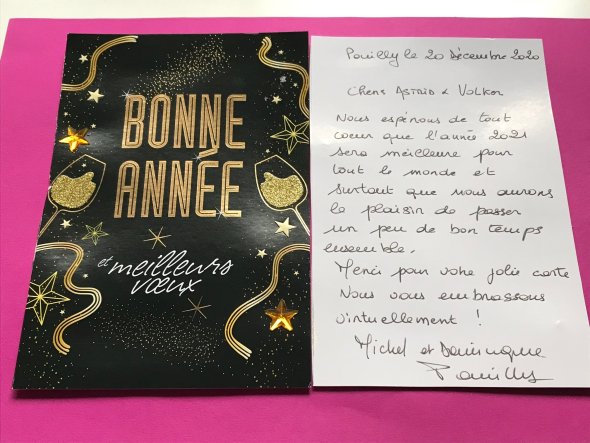 BONNE
ANNÉE
et meilleurs
vœux
Pouilly le 20 Décembre 2020
Chers Astrid & Volker
Nous espérons de tout
coeur que l'année 2021
sera meilleure pour
tout le monde et
surtout que nous aurons
le plaisir de passer
un peu de bon temps
ensemble.
Merci pour votre jolie carte
Nous vous embrassons
virtuellement !
Michel et Dominique
Pouilly